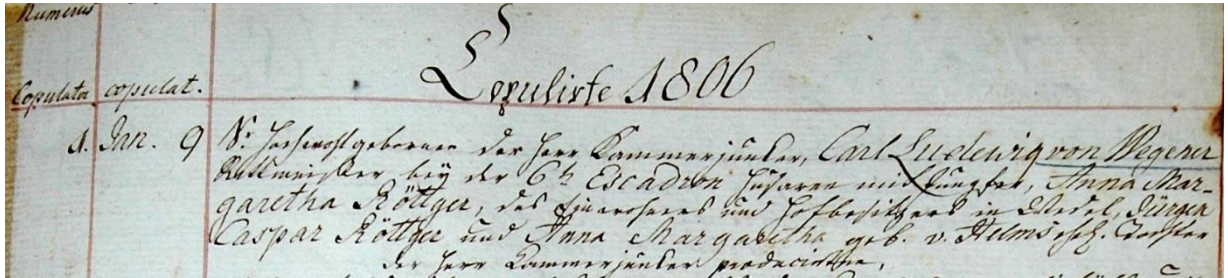 Numerus
Copulirte 1806
Copulator copulat.
1. Jan. 9 Sr. Hochwohlgeboren der Herr Kammerjunker, Carl Ludewig von Wegener
Rittmeister bey der 6t Escadron Husaren mit Jungfer, Anna Mar-
garetha Röttger, des Einwohners und Hofbesitzers in Wedel, Jürgen
Caspar Röttger und Anna Margaretha geb. v. Helms ehel. Tochter
der Herr Kammerjunker producirte